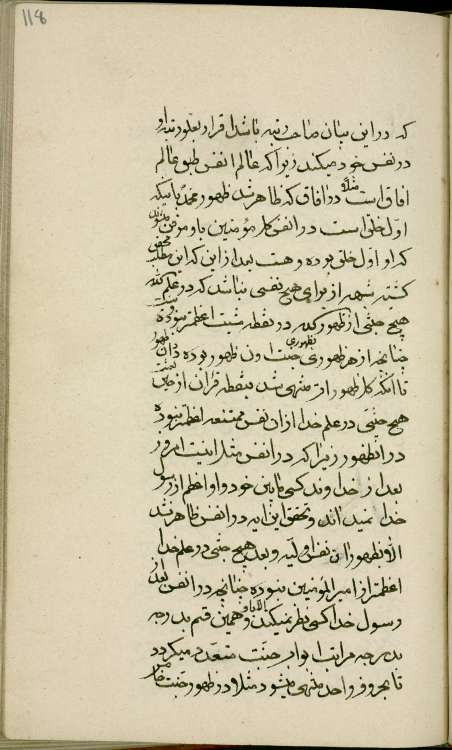 118
که در این بیان صاحب رتبه باشد اقرار بعلو رتبه او
در نفس خود میکند زیرا که عالم انفس طبق عالم
افاق است مثلا در افاق که ظاهر شد ظهور محمد باینکه
اول خلق است در انفس کل مؤمنین باو موقن
که او اول خلق بوده و هست بعد از این که این مطلب محقق
کشته شبهه از برای هیچ نفسی نباشد که در علم الله
هیچ جنتی از ظهور الله در نقطه مشیت اعظم تر نبوده
چنانچه از هر ظهوری بظهوری جنت اون ظهور بوده
تا انکه کل ظهورات منتهی شد بنقطه فرقان از حین
هیچ جنتی در علم خدا از ان نفس ممتنعه اعظمتر نبوده
در ان ظهور زیرا که در انفس مثل اینست امروز
بعد از خداوند کسی مابین خود و او اعظم از رسول
خدا نمیداند و تحقق این ایه در انفس ظاهر نشد
الا بظهور ان نفس اولیه و بعد هیچ جنتی در علم خدا
اعظمتر از امیر المؤمنین نبوده چنانچه در انفس بعد از
رسول خدا کسی نظر نمیکند الا باو و همین قسم بدرجه
بدرجه مراتب ابواب جنت متعدد میکردد
تا بحروف واحد منتهی میشود مثلا در ظهور جنت